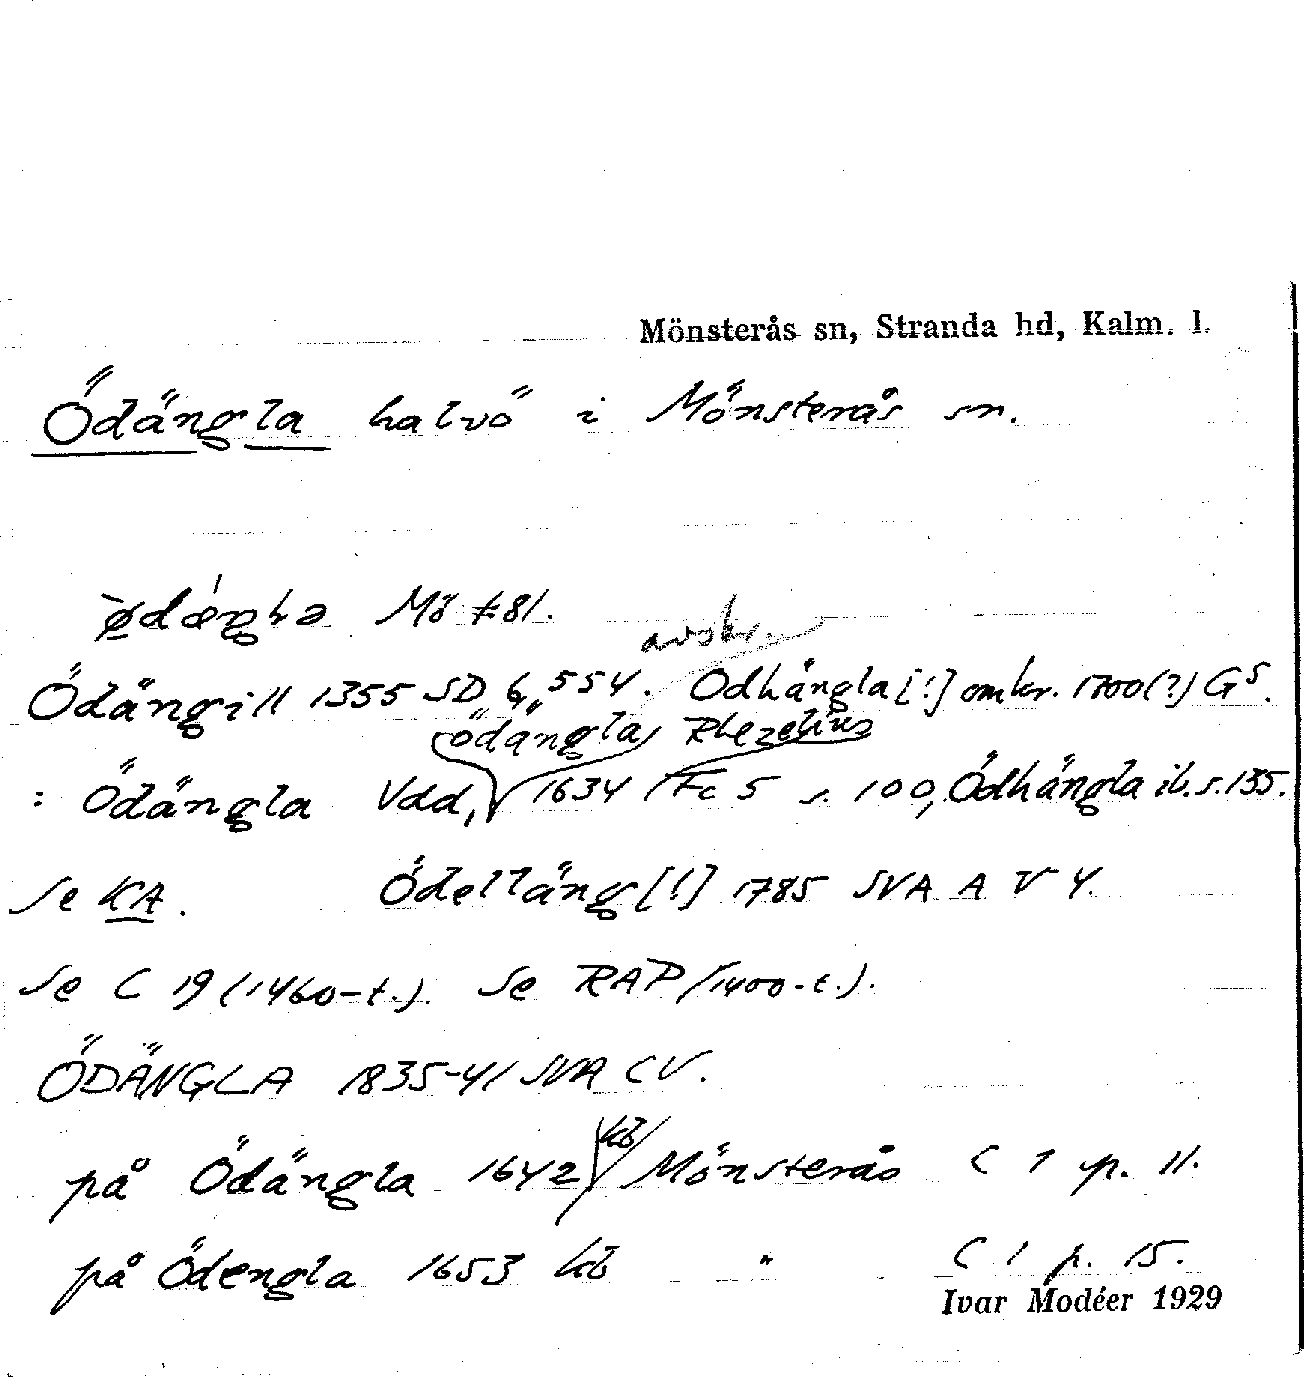 Mönsterås sn, Stranda hd, Kalm. l.
Ödängla halvö i Mönsterås sn.
Mö 81.
avskr.
Ödängill 1355 SD 6, 554. Odhångla [!] omkr. 1700 (?) G5.
Ödängla Rhezelius
: Ödängla Vdd, 1634 Fc 5 s. 100, Ödhängla ib. s. 135.
Se KA. Ödelläng [!] 1785 SVA A V 4.
Se C 19 (1460-t.). Se RAP (1400-t.).
ÖDÄNGLA 1835-41 SVA C V.
kb
på Ödängla 1642 Mönsterås C 1 p. 11.
på Ödengla 1653 kb " C 1 p. 15.
Ivar Modéer 1929